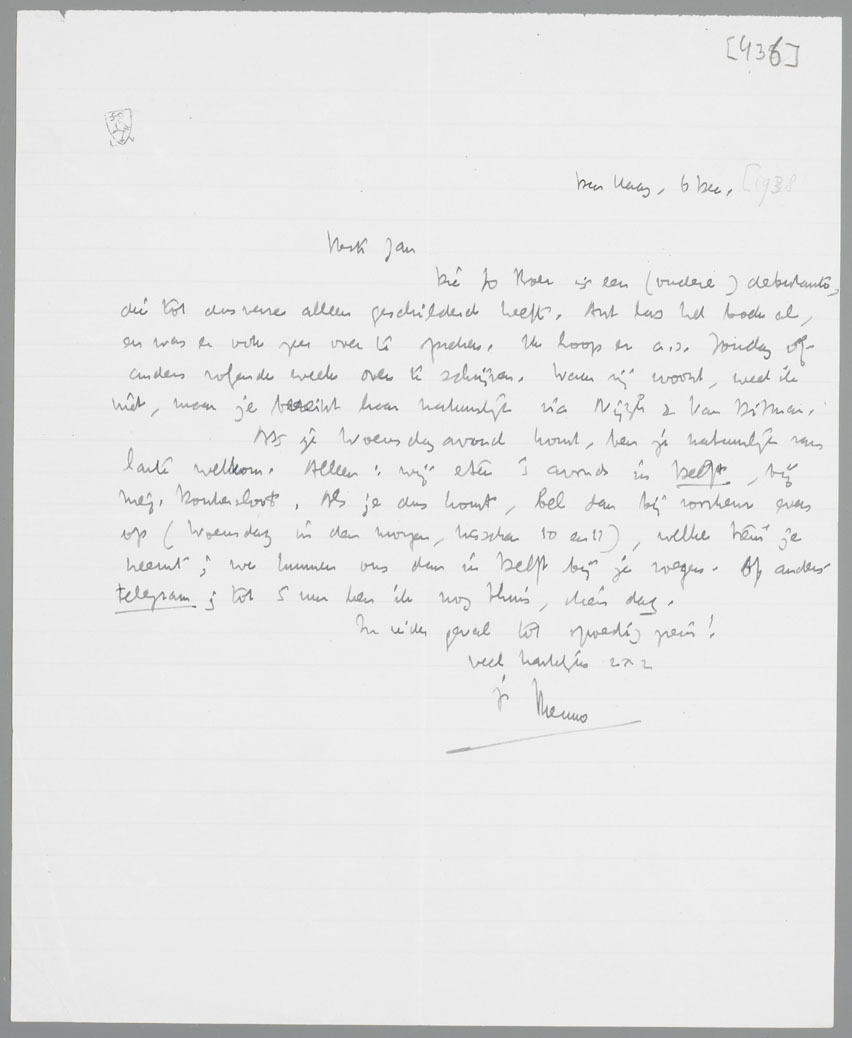 [436]
Den Haag, 6 Dec. [1938
Beste Jan
Die Jo Boer is een (oudere) debutante,
die tot dusverre alleen geschilderd heeft. Ant las het boek al,
en was er ook zeer over te spreken. Ik hoop er a.s. Zondag of
anders volgende week over te schrijven. Waar zij woont, weet ik
niet, maar je bereikt haar natuurlijk via Nijgh & Van Ditmar.
Als je Woensdagavond komt, ben je natuurlijk van
harte welkom. Alleen: wij eten 's avonds in Delft, bij
mej. . Als je dus komt, bel dan bij voorkeur even
op (Woensdag in den morgen, tusschen 10 en 11), welke trein je
neemt; we kunnen ons dan in Delft bij je voegen. Of anders
telegram; tot 5 uur ben ik nog thuis, dien dag.
In ieder geval tot spoedig ziens!
veel hartelijks 2 x 2
je Menno